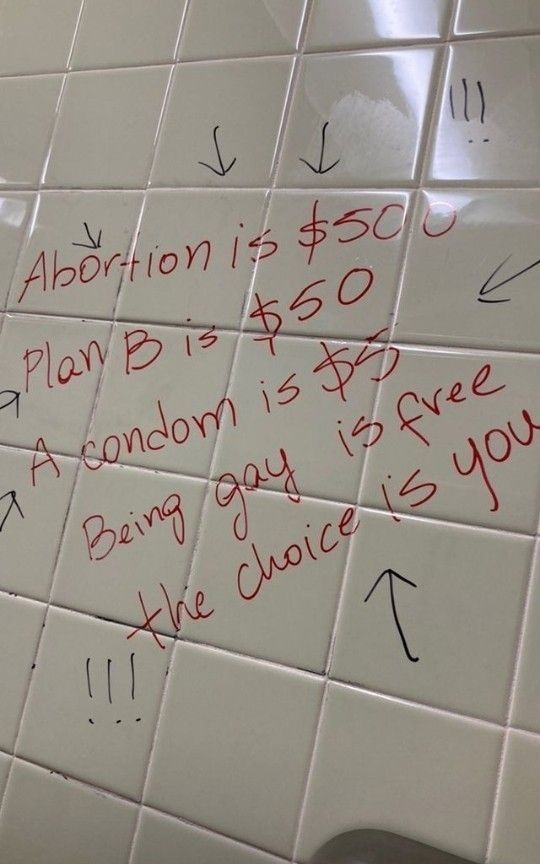 !!!
Abortion is $500
Plan B is $50
A condom is $5
Being gay is free
the choice is you
!!!